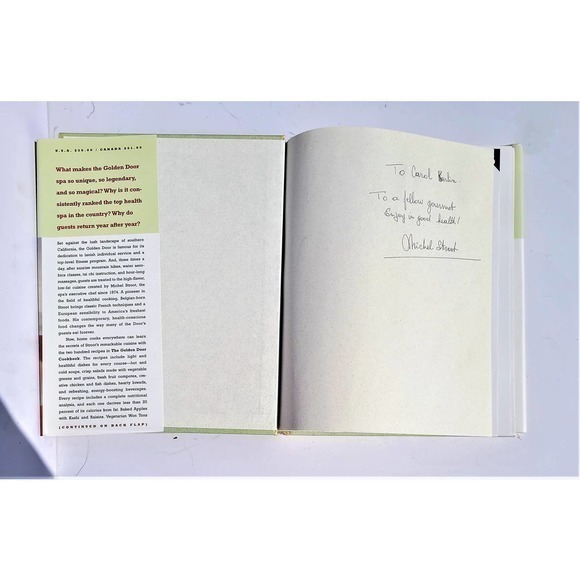 U.S.A. $29.95 / CANADA $41.99
What makes the Golden Door
spa so unique, so legendary,
and so magical? Why is it con-
sistently ranked the top health
spa in the country? Why do
guests return year after year?
Set against the lush landscape of southern
California, the Golden Door is famous for its
dedication to lavish individual service and a
top-level fitness program. And, three times a
day, after sunrise mountain hikes, water aero-
bics classes, tai chi instruction, and hour-long
massages, guests are treated to the high-flavor,
low-fat cuisine created by Michel Stroot, the
spa's executive chef since 1974. A pioneer in
the field of healthful cooking, Belgian-born
Stroot brings classic French techniques and a
European sensibility to America's freshest
foods. His contemporary, health-conscious
food changes the way many of the Door's
guests eat forever.
Now, home cooks everywhere can learn
the secrets of Stroot's remarkable cuisine with
the two hundred recipes in The Golden Door
Cookbook. The recipes include light and
healthful dishes for every course—hot and
cold soups, crisp salads made with vegetable
greens and grains, fresh fruit compotes, cre-
ative chicken and fish dishes, hearty breads,
and refreshing, energy-boosting beverages.
Every recipe includes a complete nutritional
analysis, and each one derives less than 20
percent of its calories from fat. Baked Apples
with Kashi and Raisins, Vegetarian Won Tons
(CONTINUED ON BACK FLAP)
To Carol
To a fellow gourmet
Enjoy in good health!
Michel Stroot